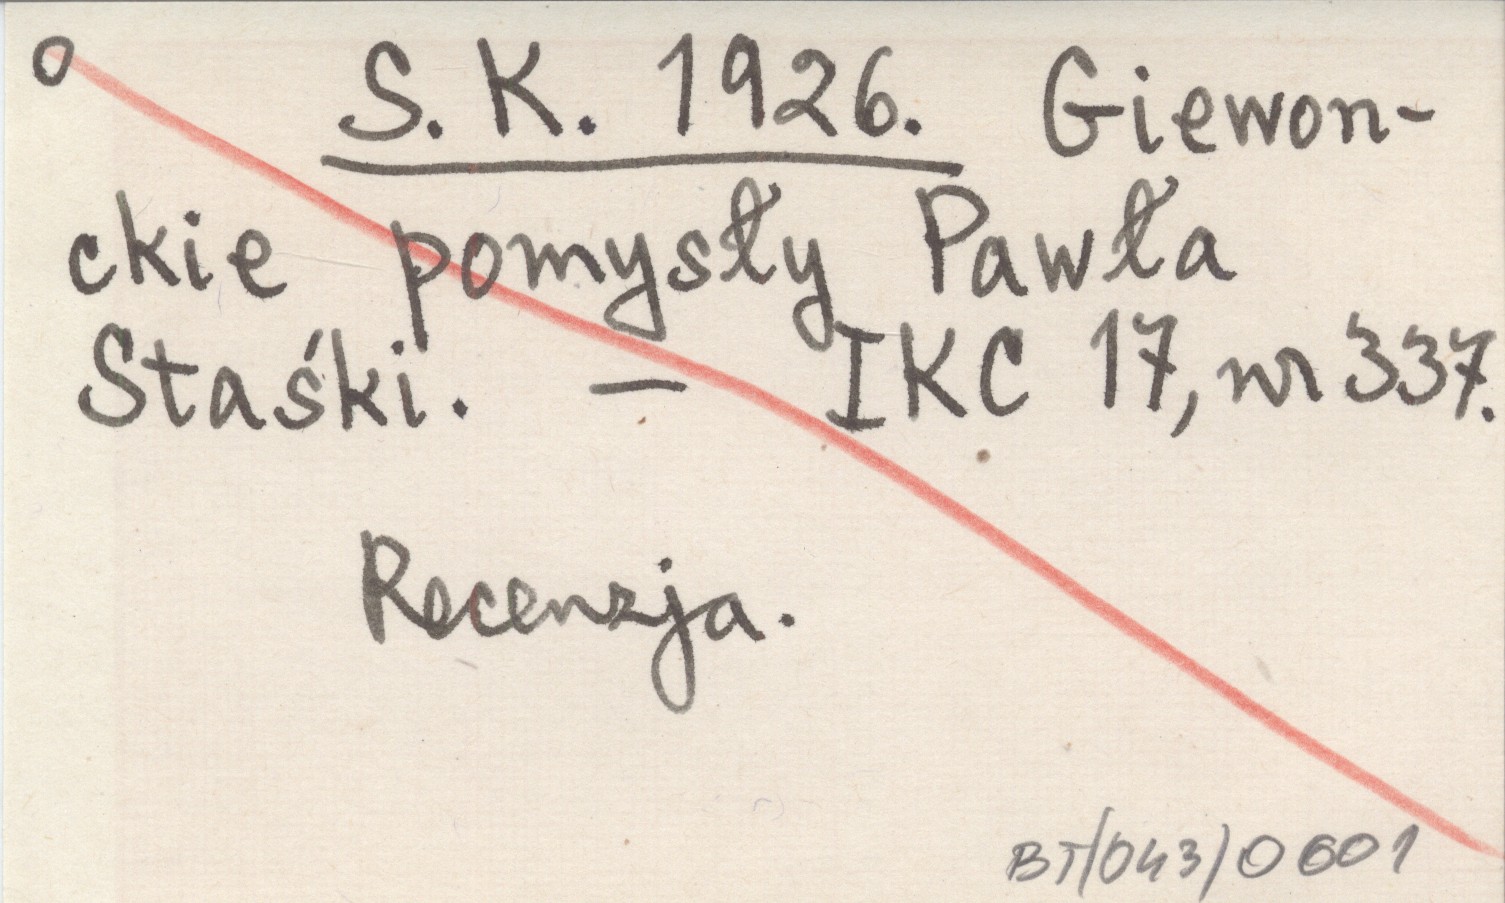 o S. K. 1926. Giewon-
ckie pomysły Pawła
Staśki. — IKC 17, nr 337.
Recenzja.
BT/043/0601